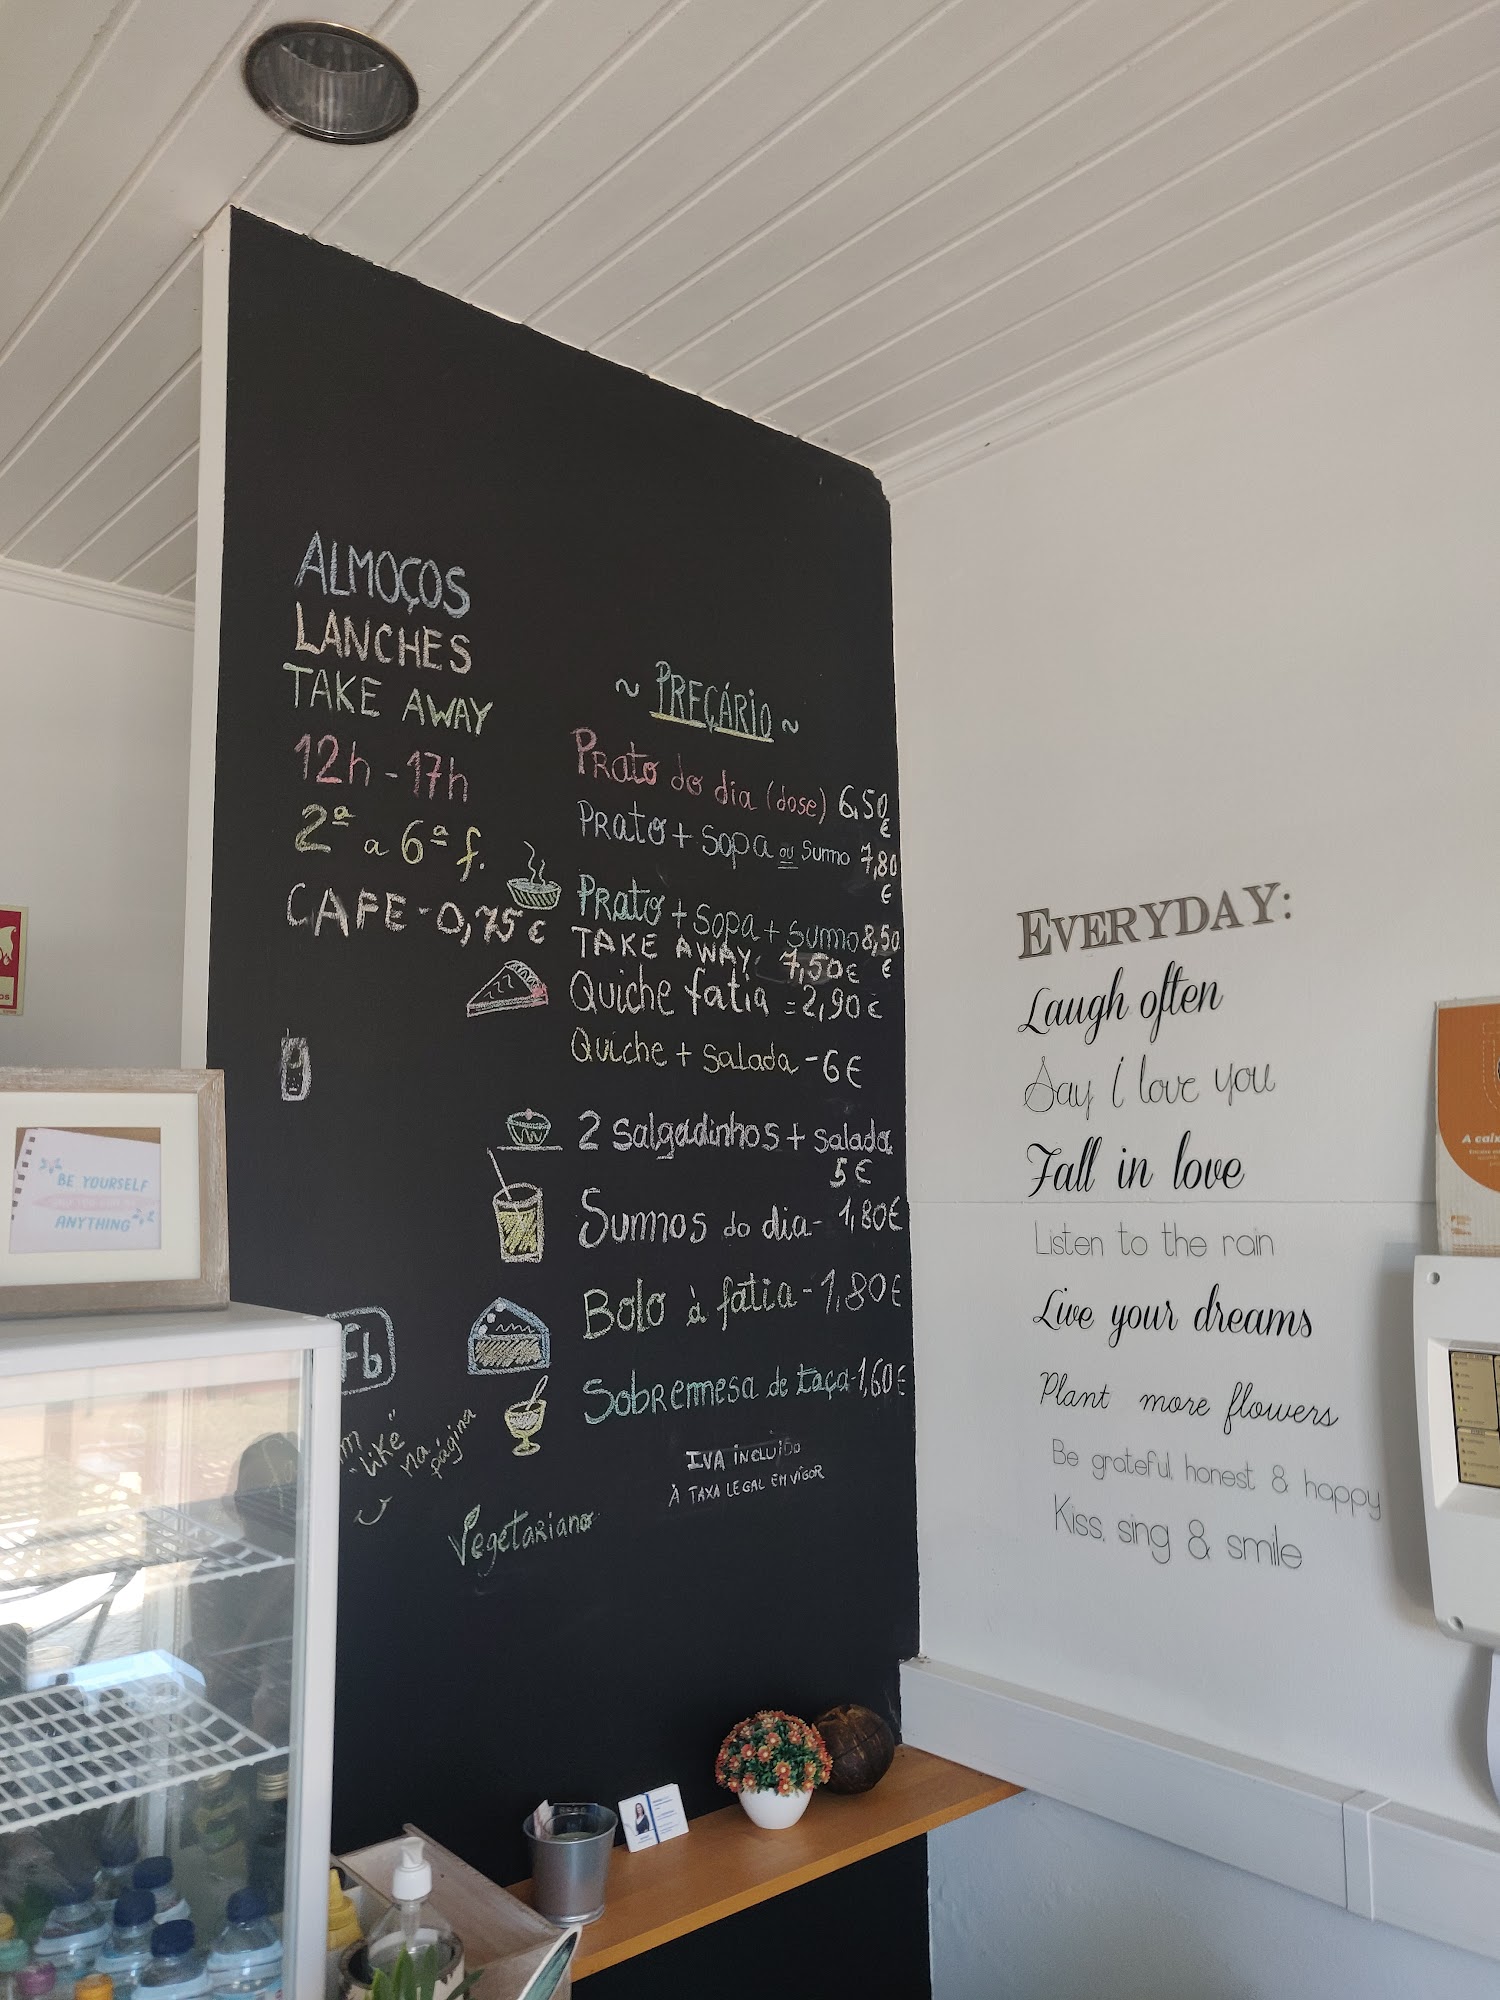 ALMOÇOS
LANCHES
TAKE AWAY
12h - 17h
2ª a 6ª f.
CAFE - 0,75€
~ PREÇÁRIO ~
Prato do dia (dose) 6,50
€
Prato + Sopa ou Sumo 7,80
€
Prato + Sopa + Sumo 8,50
€
TAKE AWAY: 7,50€
Quiche fatia = 2,90€
Quiche + Salada - 6€
2 Salgadinhos + Salada
5€
Sumos do dia - 1,80€
Bolo à fatia - 1,80€
Sobremesa de taça - 1,60€
IVA incluído
À TAXA LEGAL EM VIGOR
Fb
"like"
na
página
Vegetariano
BE YOURSELF
ANYTHING
EVERYDAY:
Laugh often
Say I love you
Fall in love
Listen to the rain
Live your dreams
Plant more flowers
Be grateful, honest & happy
Kiss, sing & smile